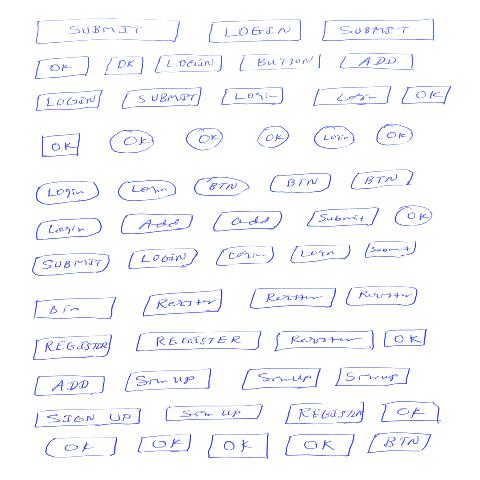 SUBMIT LOGIN SUBMIT
OK OK LOGIN BUTTON ADD
LOGIN SUBMIT Login Login OK
OK OK OK OK Login OK
Login Login BTN BTN BTN
Login Add add Submit OK
SUBMIT LOGIN Login Login Submit
Btn Register Register Register
REGISTER REGISTER Register OK
ADD Sign UP Sign UP Sign up
SIGN UP Sign UP REGISTER OK
OK OK OK OK BTN